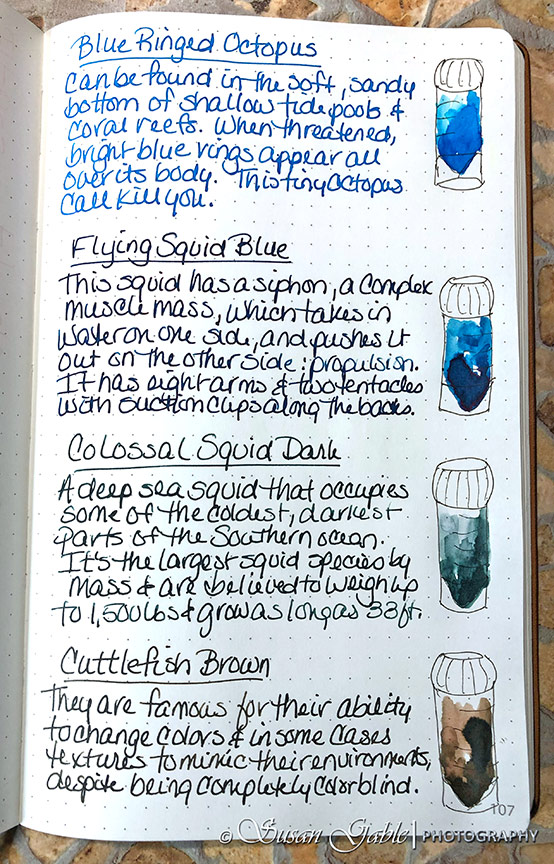 Blue Ringed Octopus
Can be found in the soft, sandy
bottom of shallow tide pools &
coral reefs. When threatened,
bright blue rings appear all
over its body. This tiny octopus
call kill you.
Flying Squid Blue
This squid has a siphon, a complex
muscle mass, which takes in
water on one side, and pushes it
out on the other side: propulsion.
It has eight arms & two tentacles
with suction cups along the backs.
Colossal Squid Dark
A deep sea squid that occupies
some of the coldest, darkest
parts of the Southern ocean.
It's the largest squid species by
mass & are believed to weigh up
to 1,500 lbs & grow as long as 33 ft.
Cuttlefish Brown
They are famous for their ability
to change colors & in some cases
textures to mimic their environments,
despite being completely colorblind.
107
© Susan Gable | PHOTOGRAPHY